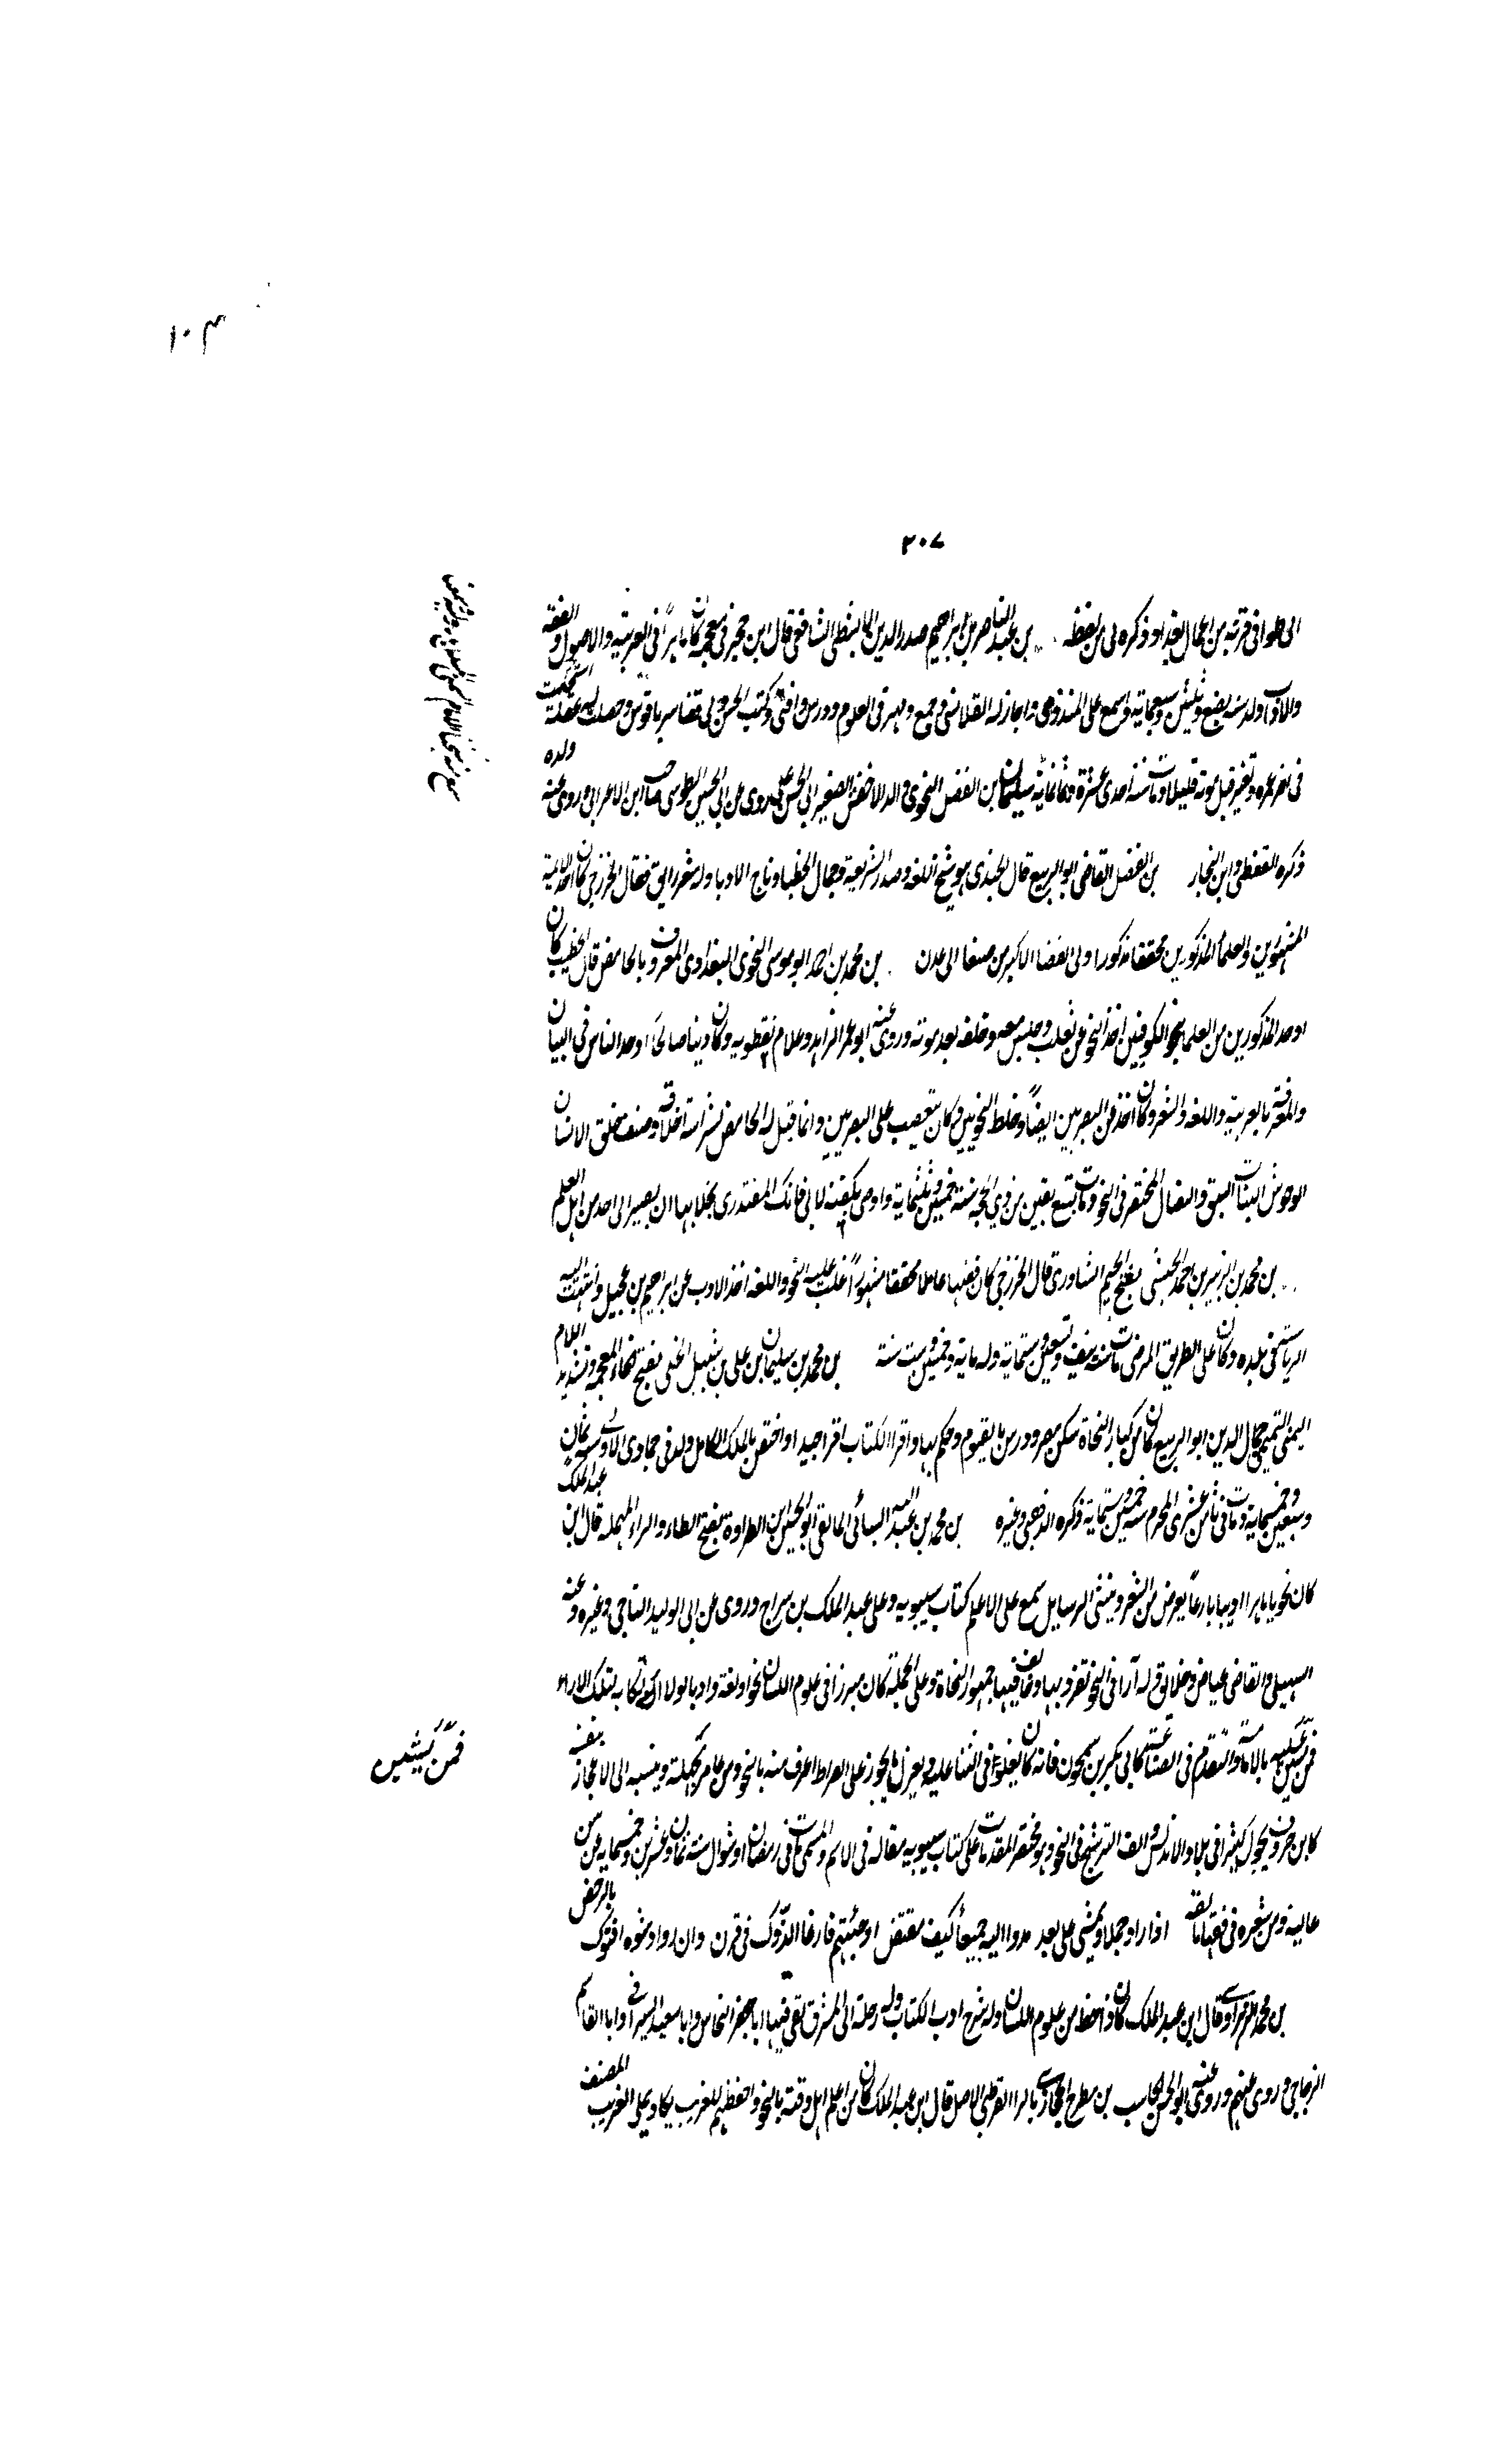 ١٠٣
٣٠٧
الى طوافى قرية من اعمال بغداد ذكره لى من لفظه بن عبد الناصر بن ابراهيم صدر الدين الابشيطى الشافعى قال ابن حجر فى معجمه كان ماهرا فى العربية والاصول والفقه
والاداب ولد سنة بضع وثلثين وسبعماية واسمع على الميدومى واجاز له القلانسى فى جمع ومهر فى العلوم ودرس وافتى وكتب الحسن وولى قضا سرياقوس وحصلت له غفلة استحكمت
فى اخر عمره وتغير قبل موته قليلا ومات سنة احدى عشرة وثمانماية سليمان بن الفضل النحوى والد الاخفش الصغير ابى الحسن على روى عن ابى الحسن الطوسى صاحب ابن الاعرابى وروى عنه ولده
ذكره القفطى وابن النجار بن الفضل القاضى ابو الربيع قال الجندى هو شيخ اللغة وصدر الشريعة وجمال الخطبا وتاج الادبا وله شعر رايق وقال الخزرجى كان احد الايمة
المشهورين والعلما المذكورين محققا مذكورا ولى القضا الاكبر من صنعا الى عدن بن محمد بن احمد ابو موسى النحوى البغدادى المعروف بالحامض قال الخطيب كان
اوحد المذكورين من العلما بنحو الكوفيين اخذ النحو عن ثعلب وجلس معه وخلفه بعد موته وروى عنه ابو عمر الزاهد وغلام نفطويه وكان دينا صالحا اوحد الناس فى البيان
والمعرفة بالعربية واللغة والشعر وكان اخذ عن البصريين ايضا وخلط النحويين وكان يتعصب على البصريين وانما قيل له الحامض لشراسة اخلاقه وصنف خلق الانسان
الوحوش النبات السبق والنضال المختصر فى النحو ومات لسبع بقين من ذى الحجة سنة خمس وثلثماية واوصى بكتبه لابى فاتك المقتدرى بخلا بها ان تصير الى احد من اهل العلم
بن محمد بن الزبير بن احمد الجيشى بفتح الجيم الشاورى قال الخزرجى كان فقيها عاملا محققا مشهورا غلب عليه النحو واللغة اخذ الادب عن ابراهيم بن عجيل وانتهت اليه
الرياسة فى بلده وكان على الطريق المرضى مات سنة نيف وتسعين وستماية وله ماية وخمس وست سنة بن محمد بن سليمان بن على بن شبيل الخلى بفتح الخاء المعجمة وتشديد اللام
اليمنى التميمى جمال الدين ابو الربيع كان من كبار النحاة سكن مصر ودرس بالفيوم وحكم بها واقرا الكتاب اقرا جيدا واختص بالملك الكامل ولد فى جمادى الاولى سنة ثمان
وسبعين وخمسماية ومات فى ثامن عشرى المحرم سنة خمس وستماية ذكره الذهبى وغيره بن محمد بن عبد الله السبائى المالقى ابو الحسين ابن الطراوة بفتح الطاء والراء المهملة قال ابن عبد الملك
كان نحويا ماهرا اديبا بارعا يقرض من الشعر وينشى الرسايل سمع على الاعلم كتاب سيبويه وعلى عبد الملك بن سراج وروى عن ابى الوليد الباجى وغيره وعنه
السهيلى والقاضى عياض وخلايق وله آرا فى النحو تفرد بها وخالف فيها جمهور النحاة وعلى الجملة كان مبرزا فى علوم اللسان نحوا ولغة وادبا لولا ارتكابه لتلك الارا
فمن يثنى عليه بالامامة والتقدم فى الصناعة كابى بكر بن سمحون فانه كان يغلو فى الثنا عليه ويقول ما يجوز على الصراط اعرف منه بالنحو ومن غامز يجهله وينسبه الى الاعجاز بنفسه
كابن خروف يجول كثيرا فى بلاد الاندلس والف الترشيح فى النحو وهو مختصر المقدمات على كتاب سيبويه مقالة فى الاسم والمسمى مات فى رمضان او شوال سنة ثمان وعشرين وخمسماية عن سن
عالية ومن شعره فى فقها مالقة اذا راوا جملا يمشى على بعد مدوا اليه جميعا كيف مقتنص او جئتهم فارغا لذوك فى قرن وان راوا رشوة افتوك بالرخص
بن محمد الزهراوى قال ابن عبد الملك كان ذا حظ من علوم اللسان وله شرح ادب الكتاب وله رحلة الى المشرق لقى فيها ابا جعفر النحاس وابا سعيد السيرافى وابا القاسم
الزجاجى وروى عنهم وروى عنه ابو الحسن الحاسب بن مطرح الحجازى بالرا القرطبى الاصل قال ابن عبد الملك كان من اعلم اهل وقته بالنحو واحفظهم للغريب يكاد يملى الغريب المصنف
فمن يثنى